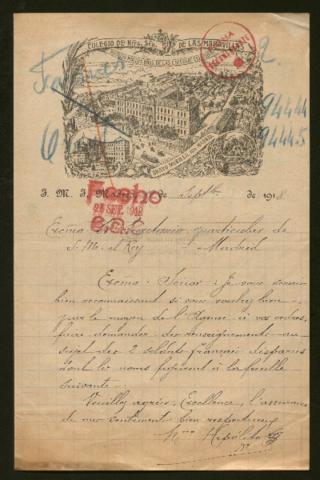 COLEGIO DE Ntra. Sra. DE LAS MARAVILLAS
Frances
2.
94444
94445
J. M. J. M de Sepbre de 1918
Fecho
SET. 1918
Excmo Sr. Secretario particular de
S. M. el Rey Madrid
Excmo. Señor: Je vous serais
bien reconnaissant si vous vouliez bien,
par le moyen de l'Œuvre à vos ordres,
faire demander des renseignements au
sujet des 2 soldats français disparus
dont les noms figurent à la feuille
suivante.
Veuillez agréer, Excellence, l'assurance
de mes sentiments bien respectueux
Hno Hipólito